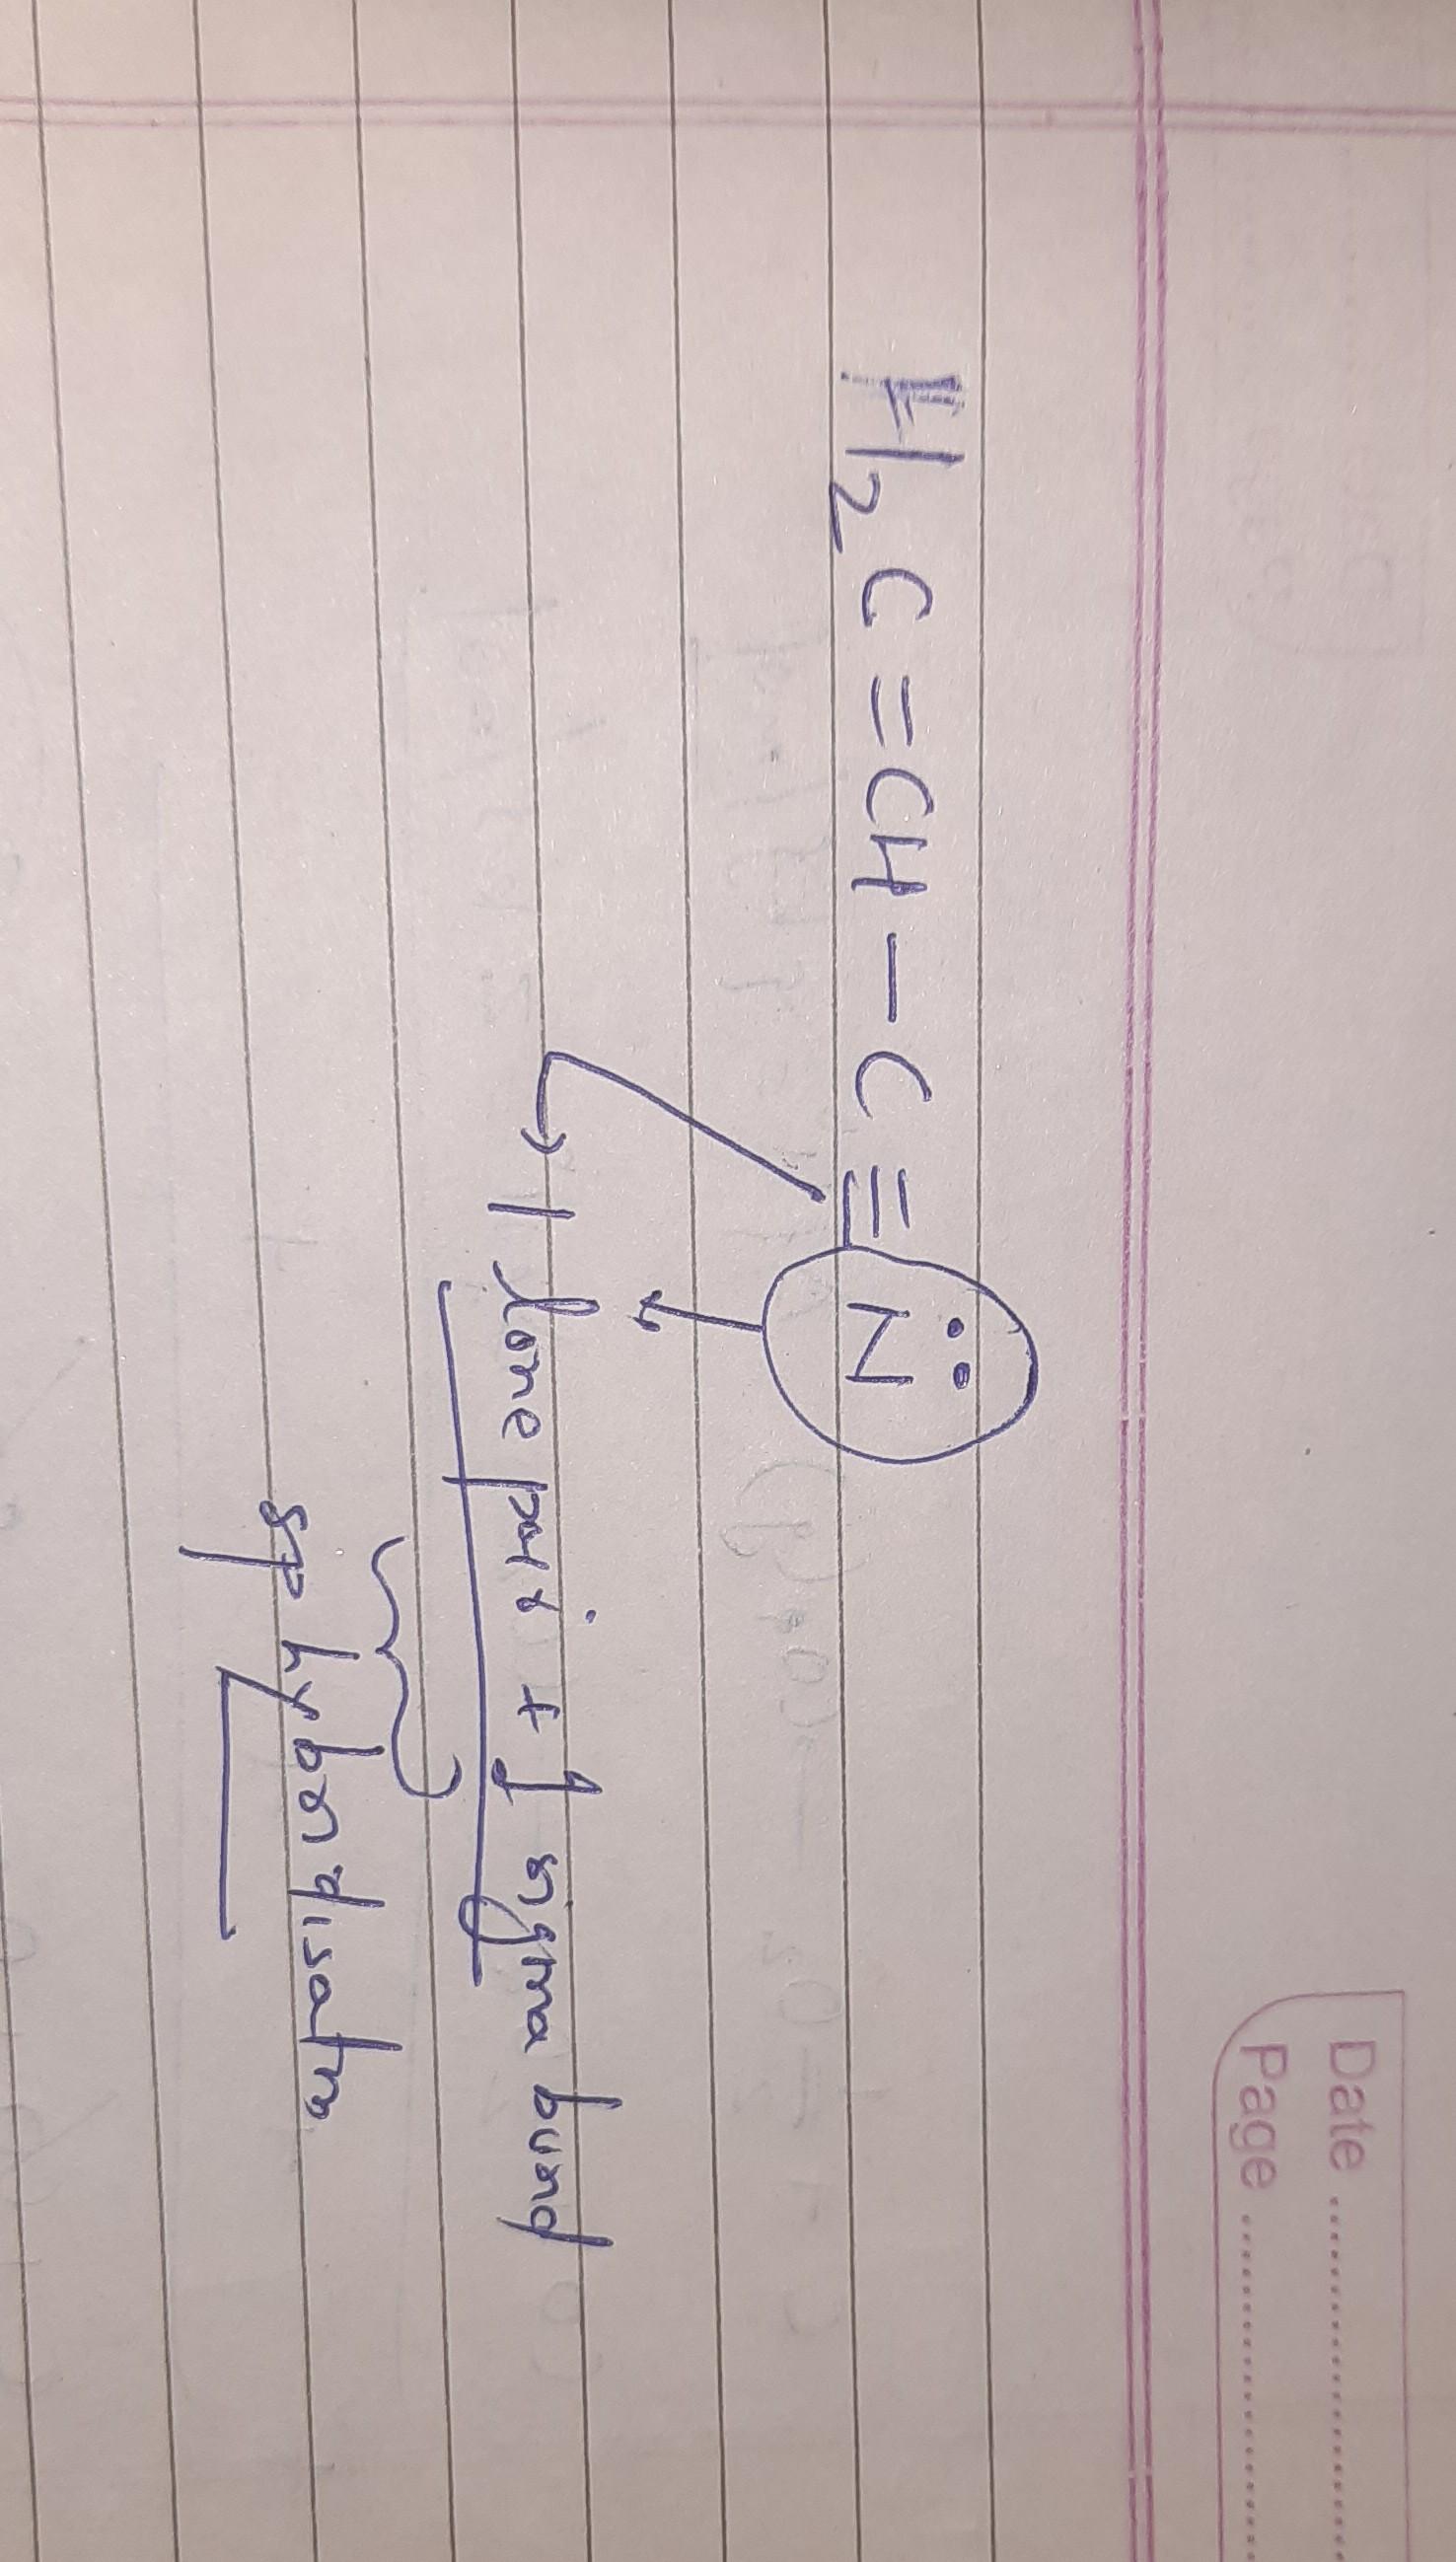 Date ..................
Page ..................
H₂C=CH-C≡N̈
1 lone pair + 1 sigma bond
sp hybridisation